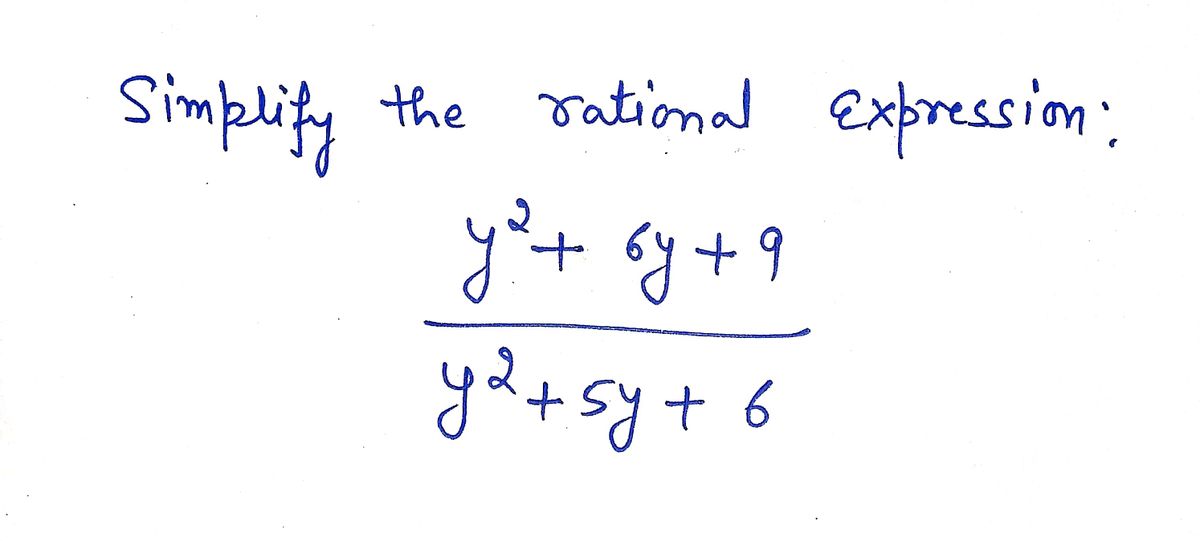 Simplify the rational Expression:
y² + 6y + 9
y² + 5y + 6